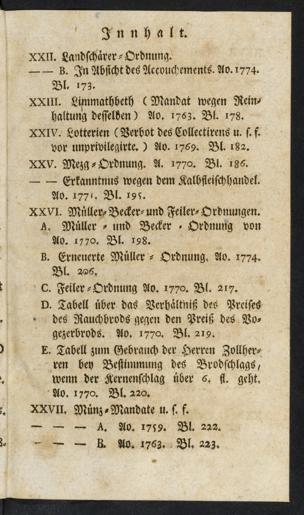 Innhalt.
XXII. Landschärer-Ordnung.
—— B. In Absicht des Accouchements. Ao. 1774.
Bl. 173.
XXIII. Limmathbeth (Mandat wegen Rein-
haltung desselben) Ao. 1763. Bl. 178.
XXIV. Lotterien (Verbot des Collectirens u. s. f.
vor unprivilegirte.) Ao. 1769. Bl. 182.
XXV. Metzg-Ordnung. A. 1770. Bl. 186.
—— Erkanntnus wegen dem Kalbfleischhandel.
Ao. 1771. Bl. 195.
XXVI. Müller-Becker- und Feiler-Ordnungen.
A. Müller- und Becker-Ordnung von
Ao. 1770. Bl. 198.
B. Erneuerte Müller-Ordnung. Ao. 1774.
Bl. 206.
C. Feiler-Ordnung Ao. 1770. Bl. 217.
D. Tabell über das Verhältniß des Preises
des Rauchbrods gegen den Preiß des Vo-
gezerbrods. Ao. 1770. Bl. 219.
E. Tabell zum Gebrauch der Herren Zollher-
ren bey Bestimmung des Brodschlags,
wenn der Kernenschlag über 6. fl. geht.
Ao. 1770. Bl. 220.
XXVII. Münz-Mandate u. s. f.
— — — A. Ao. 1759. Bl. 222.
— — — B. Ao. 1763. Bl. 223.